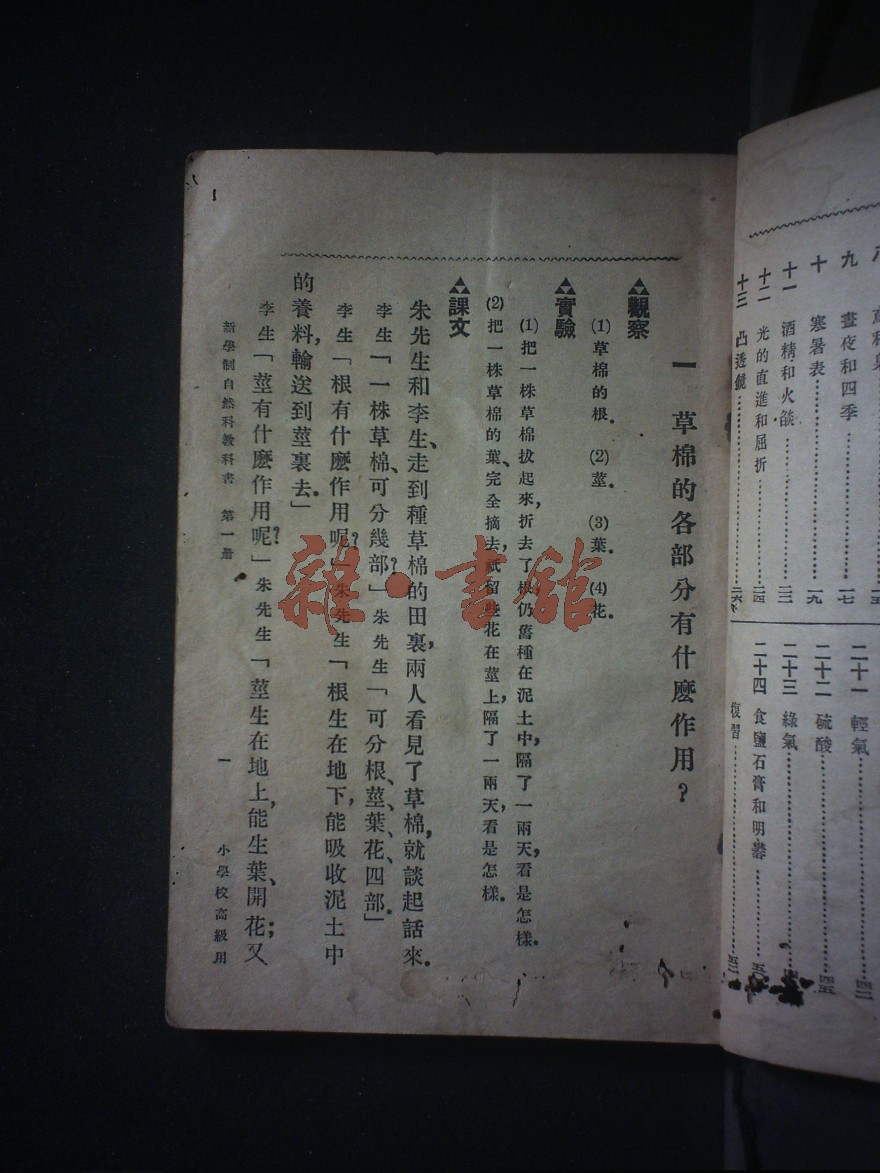 九 晝夜和四季 一七
十 寒暑表 一九
十一 酒精和火燄 二二
十二 光的直進和屈折 二四
十三 凸透鏡 二六
二十一 輕氣 四二
二十二 硫酸 四五
二十三 綠氣
二十四 食鹽石膏和明礬 五〇
復習 五二
一 草棉的各部分有什麽作用？
觀察
(1)草棉的根。 (2)莖。 (3)葉。 (4)花。
實驗
(1)把一株草棉拔起來，折去了根，仍舊種在泥土中，隔了一兩天，看是怎樣。
(2)把一株草棉的葉、完全摘去，祇留些花在莖上，隔了一兩天，看是怎樣。
課文
朱先生和李生、走到種草棉的田裏，兩人看見了草棉，就談起話來。
李生「一株草棉、可分幾部？」朱先生「可分根、莖、葉、花、四部。」
李生「根有什麽作用呢？」朱先生「根生在地下，能吸收泥土中
的養料，輸送到莖裏去。」
李生「莖有什麽作用呢？」朱先生「莖生在地上，能生葉、開花；又
新學制自然科教科書 第一册 一 小學校高級用
雜·書館